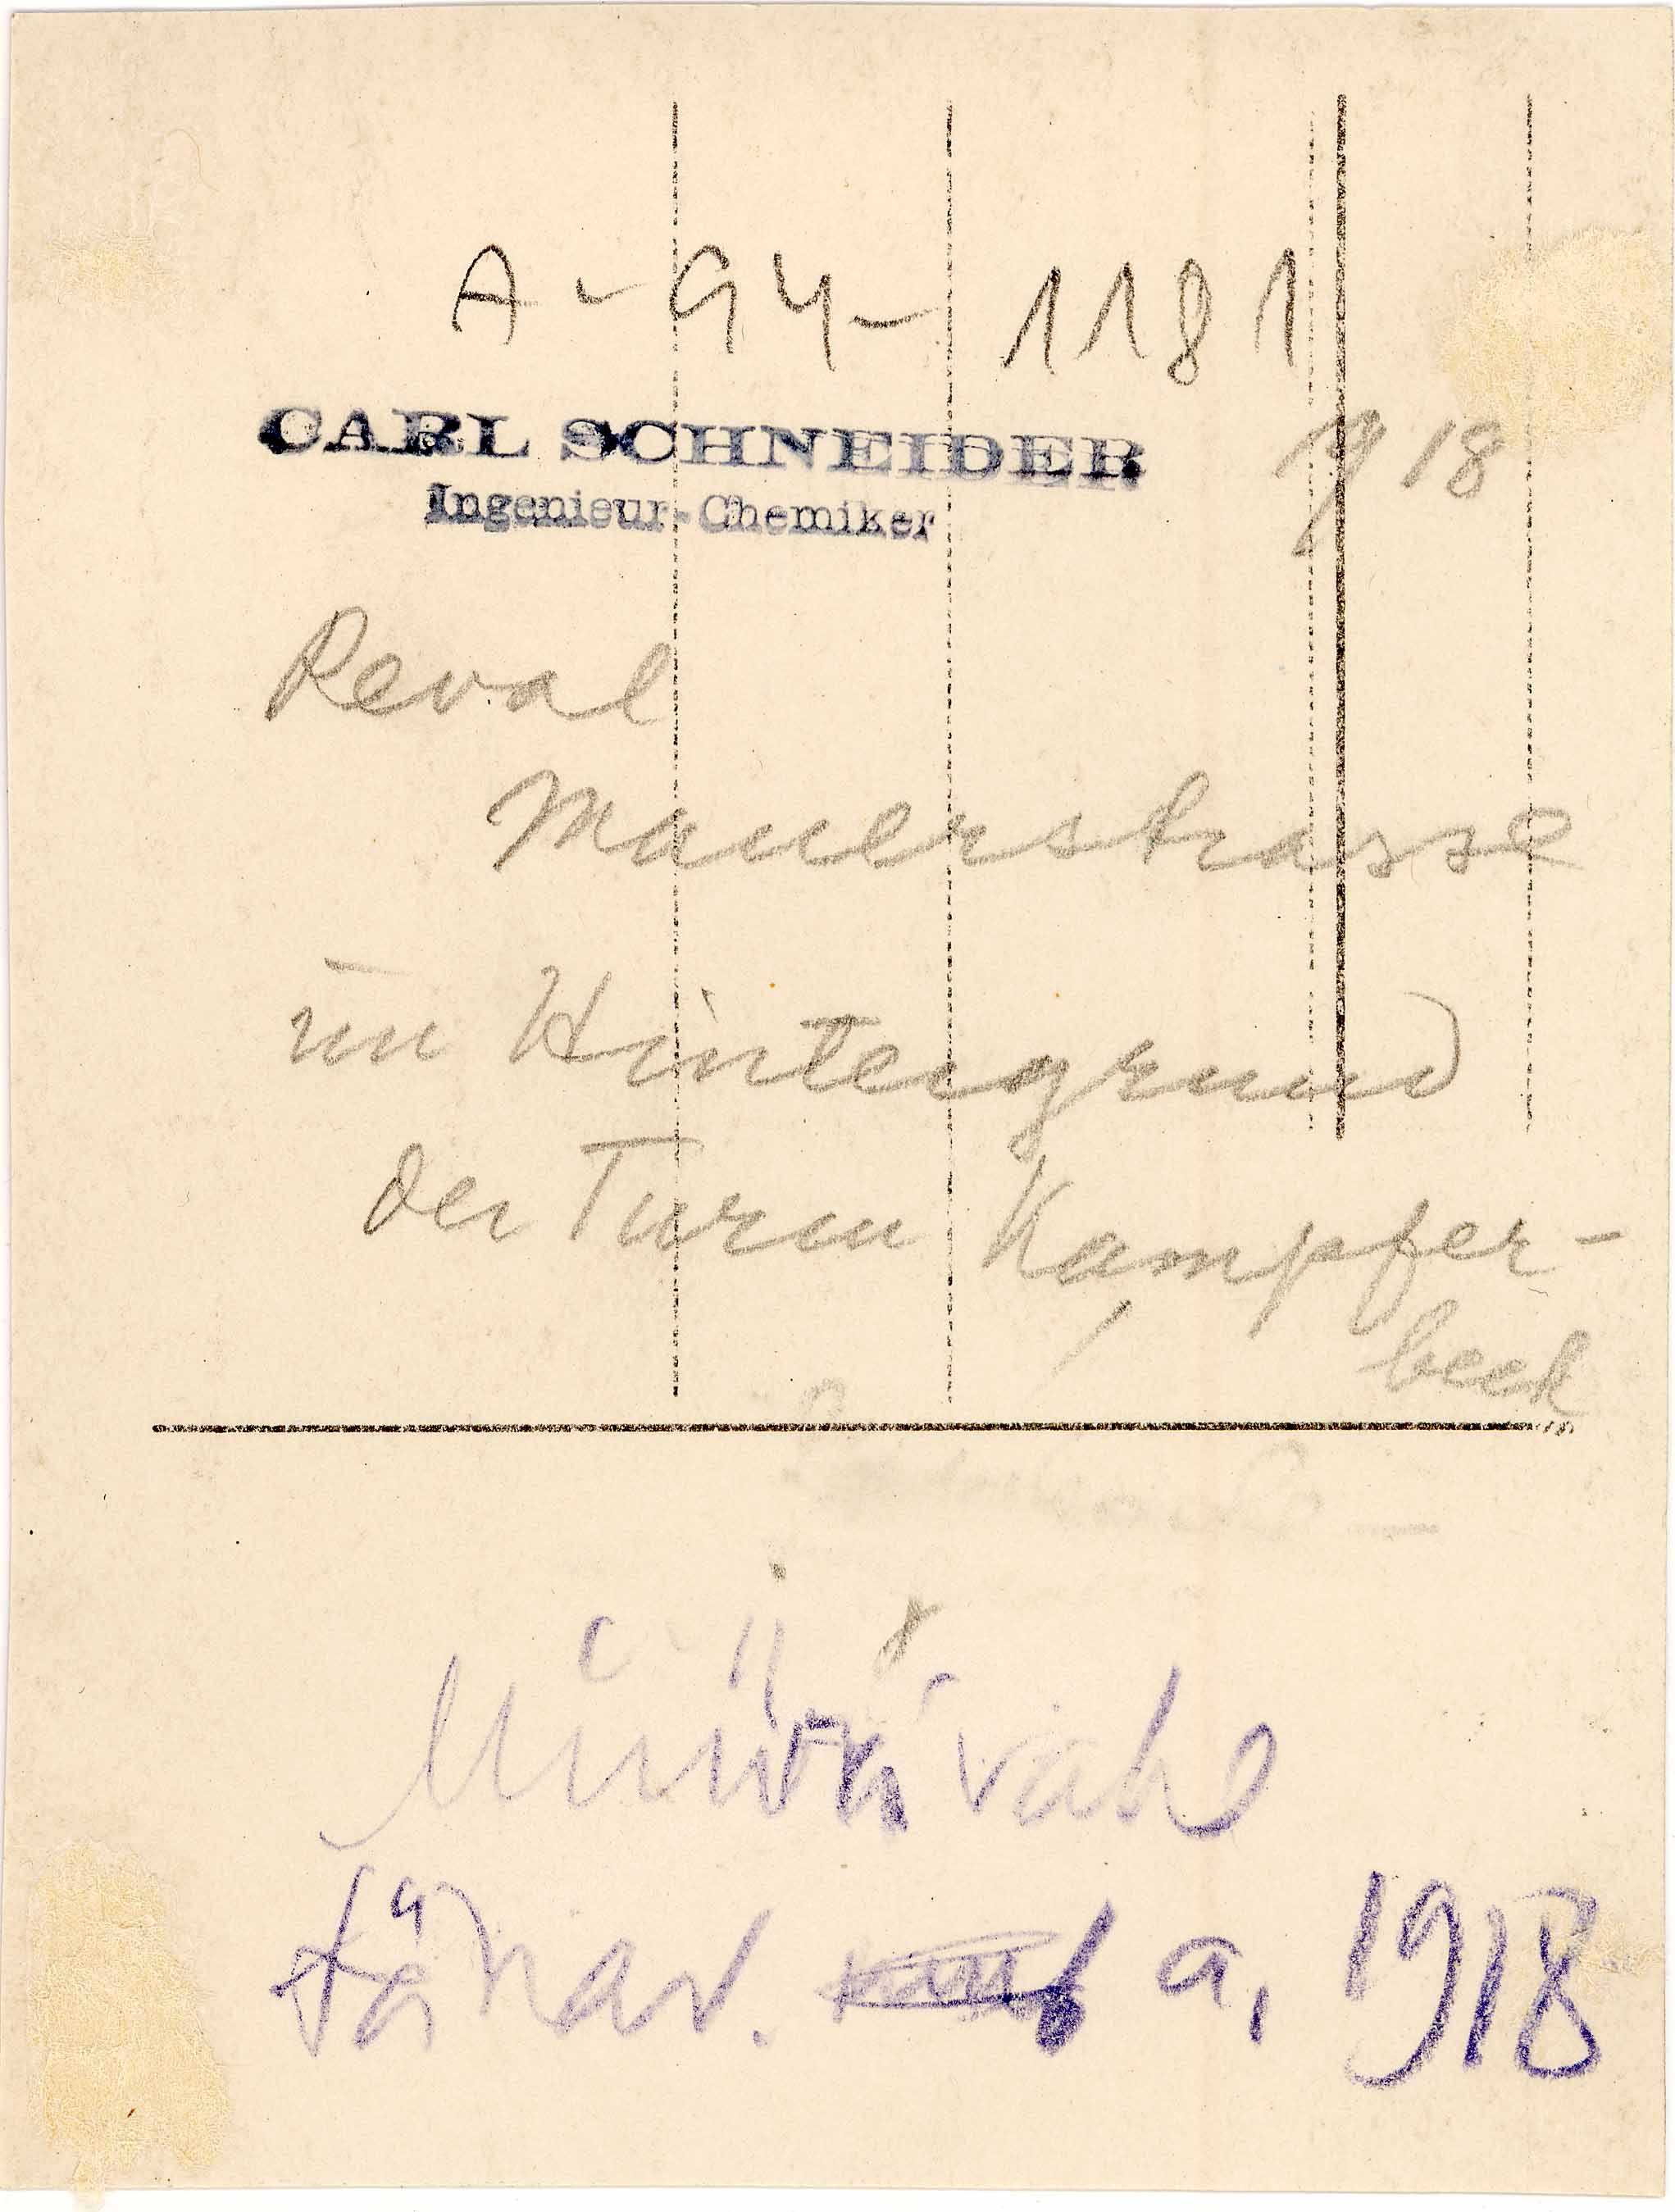 A-94-1181
CARL SCHNEIDER
1918
Ingenieur-Chemiker
Reval
Mauerstrasse
im Hintergrund
der Turm Kampfer-
beck
Müüri vahe
tänav. a, 1918